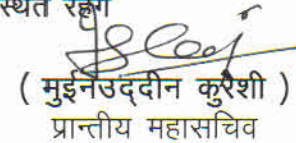 स्थित रहेंगे
( मुईनउद्दीन कुरैशी )
प्रान्तीय महासचिव